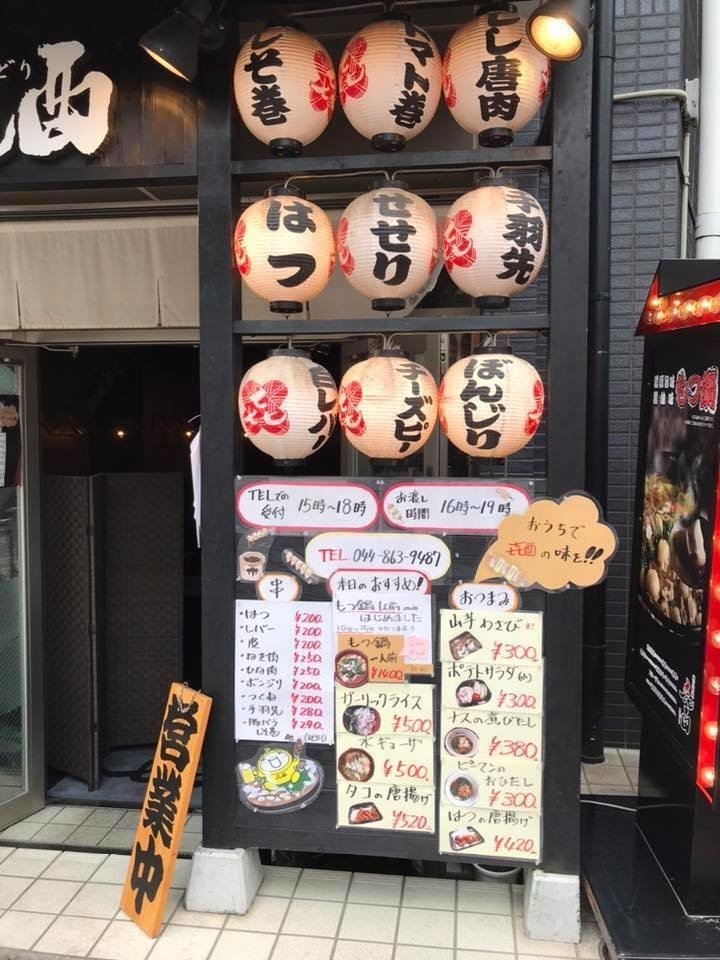 どり
酉
しそ巻
トマト巻
しし唐肉
はつ
せせり
手羽先
白レバー
チーズピー
ぼんじり
もつ鍋
TELでの受付 15時〜18時
お渡し時間 16時〜19時
TEL 044-863-9487
おうちで
の味を!!
串
・はつ ¥200
・レバー ¥200
・皮 ¥200
・ねぎ肉 ¥250
・ひな肉 ¥250
・ボンジリ ¥200
・つくね ¥200
・手羽先 ¥280
・豚バラしそ巻 ¥290
本日のおすすめ!
もつ鍋1人前
はじめました
もつ鍋
一人前
¥1400
ガーリックライス
¥500
水ギョーザ
¥500
タコの唐揚げ
¥520
おつまみ
山芋わさび
¥300
ポテトサラダ
¥300
ナスの煮びたし
¥380
ピーマンの
おひたし
¥300
はつの唐揚げ
¥420
営業中